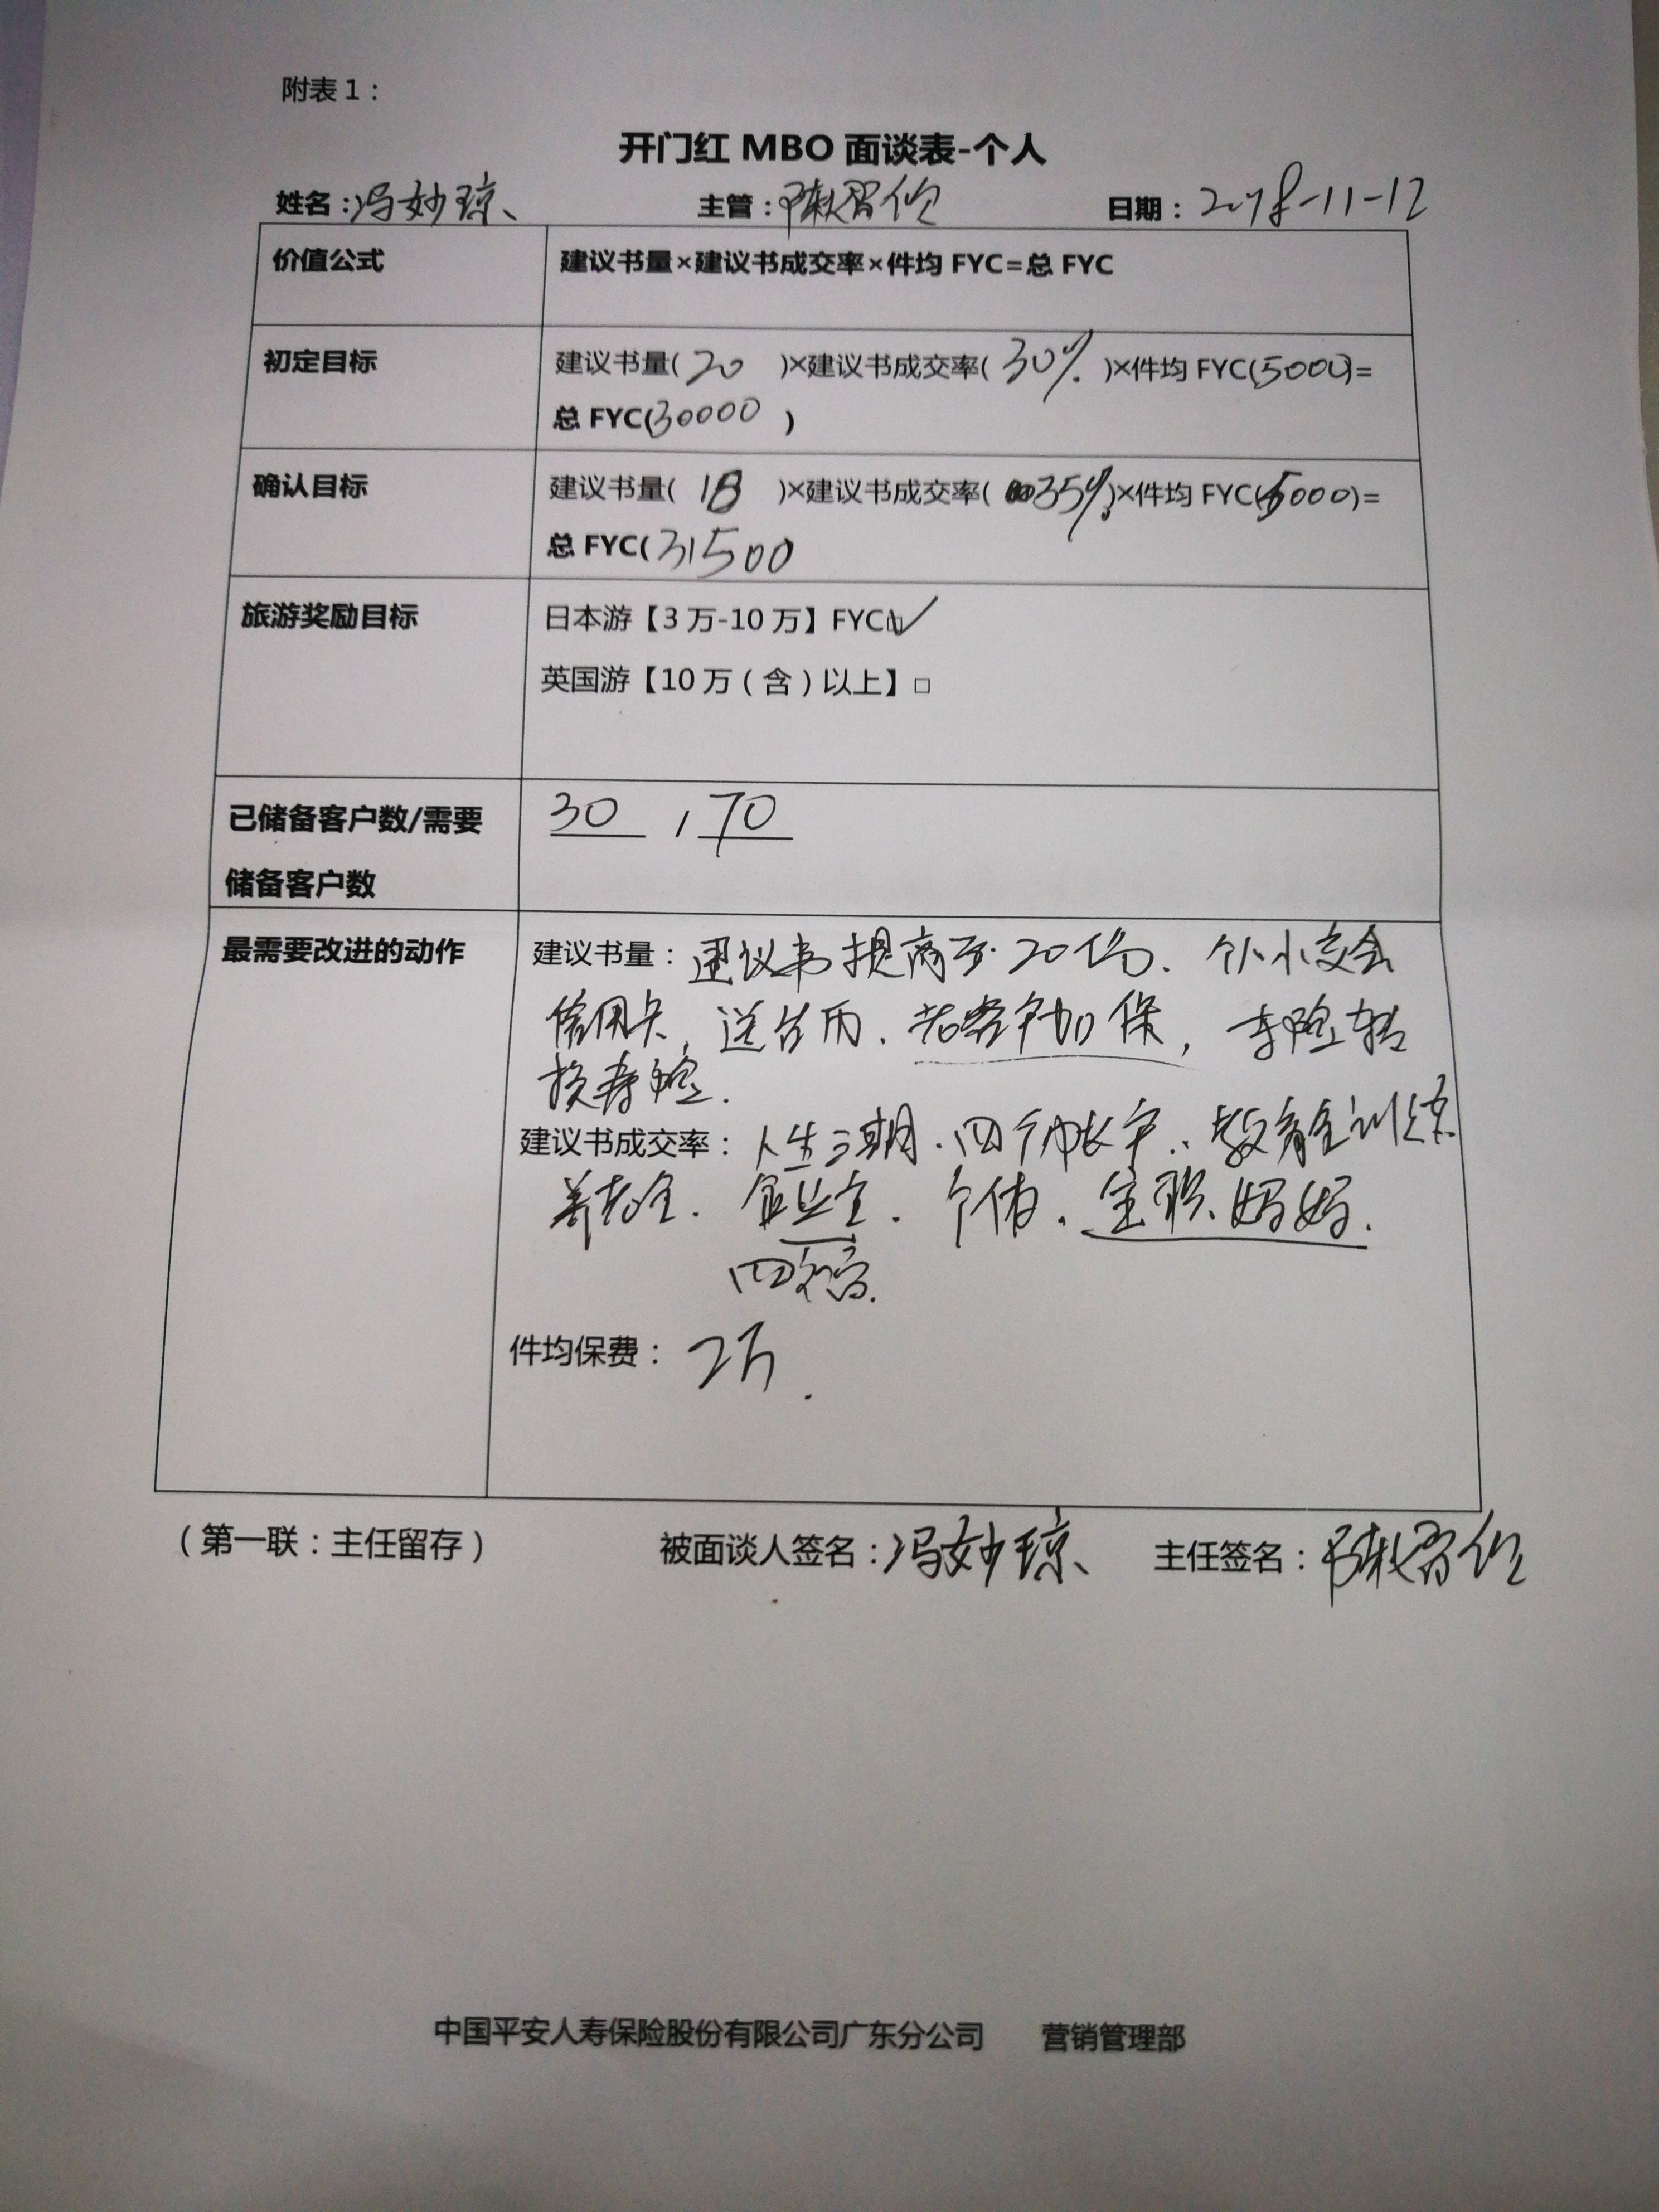 附表1：
开门红 MBO 面谈表-个人
姓名：冯妙琼、 主管：陈 日期：2018-11-12
价值公式 建议书量×建议书成交率×件均 FYC=总 FYC
初定目标 建议书量( 20 )×建议书成交率( 30% )×件均 FYC(5000)=
总 FYC(30000 )
确认目标 建议书量( 18 )×建议书成交率( 35% )×件均 FYC(5000)=
总 FYC( 31500
旅游奖励目标 日本游【3 万-10 万】FYC□✓
英国游【10 万（含）以上】□
已储备客户数/需要 30 , 70
储备客户数
最需要改进的动作 建议书量：建议书提高至20份. 个人小交会
信用卡, 送台历. 老客户加保, 车险转
换寿险.
建议书成交率：人生三期. 四个帐户. 教育金训练
养老金. 企业主. 全职妈妈.
件均保费：2万.
（第一联：主任留存） 被面谈人签名：冯妙琼、 主任签名：陈
中国平安人寿保险股份有限公司广东分公司 营销管理部